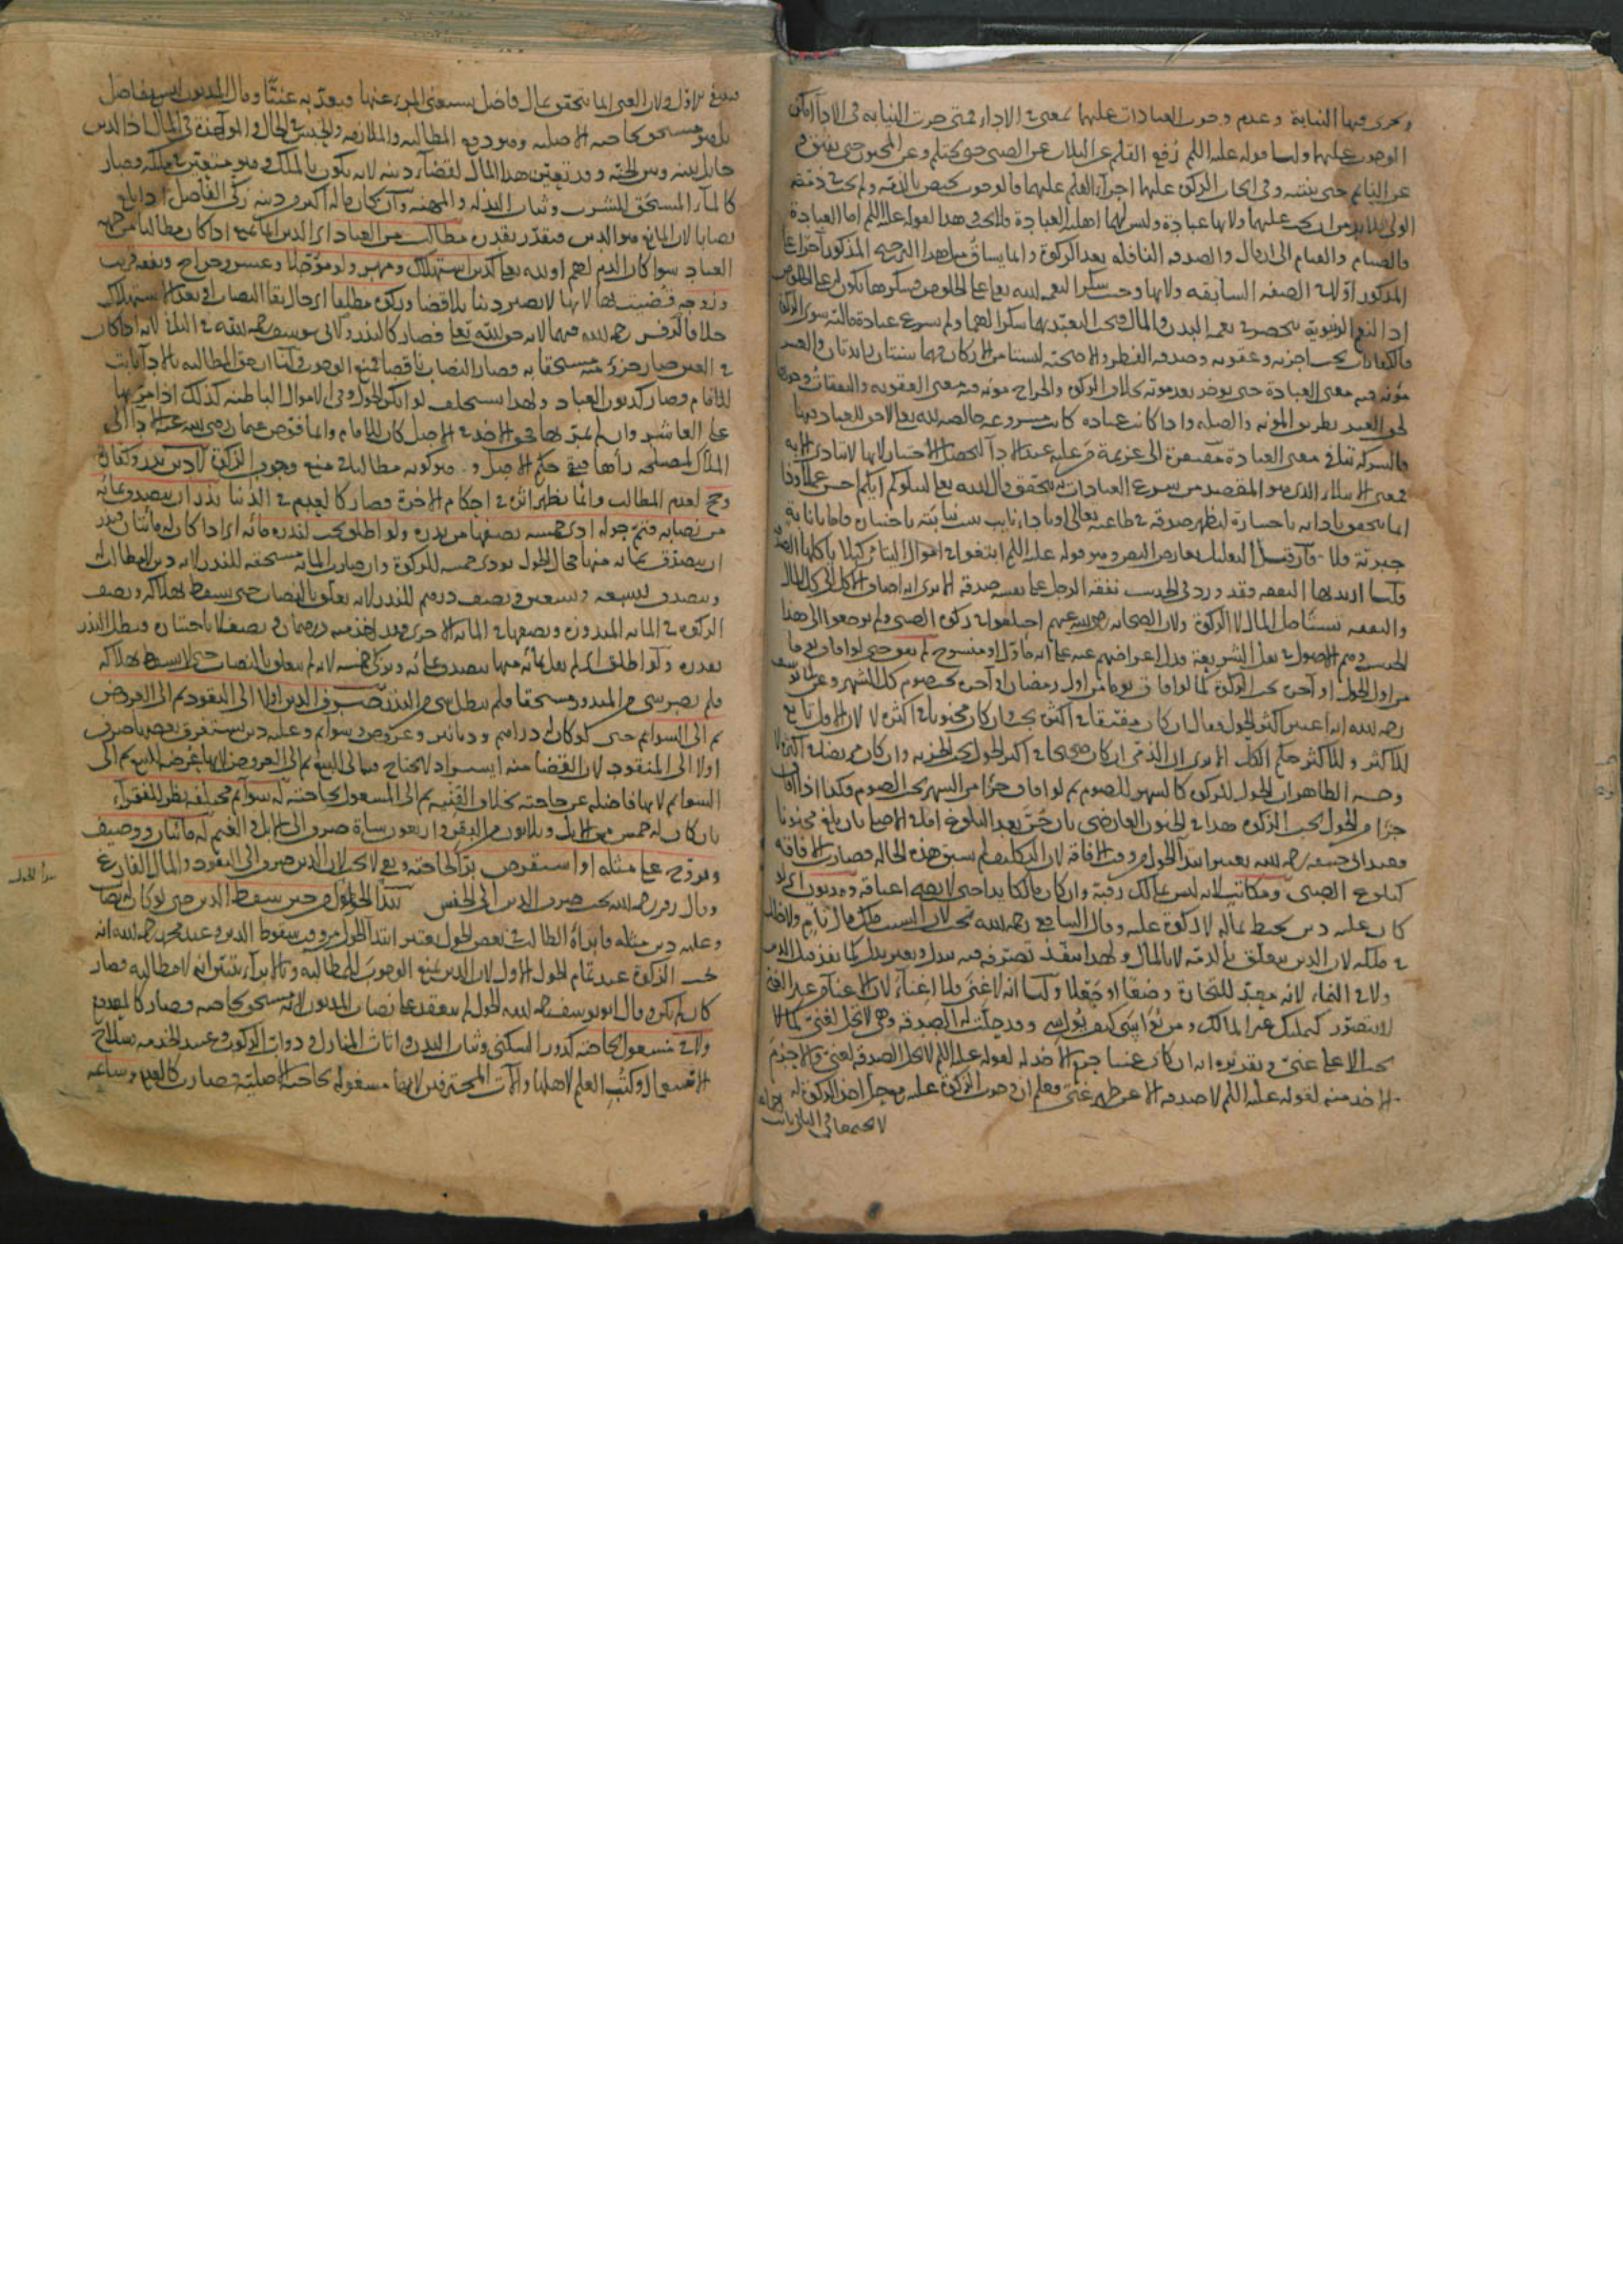 ويجرى فيها النيابة وعدم وجوب العبادات عليهما لمعنى في الاداء فمتى جرت النيابة في الاداء امكن
الوجوب عليهما ولنا قوله عليه السلم رفع القلم عن الثلاث عن الصبى حتى يحتلم وعن المجنون حتى يفيق و
عن النايم حتى ينتبه وفي ايجاب الزكوة عليهما اجراء القلم عليهما فالوجوب يختص بالذمة ولم يجب في ذمة
الولى فلا بد من ان يجب عليهما ولانها عبادة وليس لهما اهلية العبادة فلا يجب وهذا لقوله عليه السلم اما العبادة
فالصيام والقيام الى ان قال والصدقة النافلة بعد الزكوة وانما يساق مثل هذا
المذكور اولا في الصفة السابقة ولانها وجبت شكرا لنعمة الله تعالى على الخلوص فشكرها يكون له على الخلوص
اذ النعم الدنيوية تنحصر في نعمة البدن والمال فيجب التعبد بهما شكرا لهما ولم يشرع عبادة مالية سوى الزكوة
فالكفارات يجب اجزية وعقوبة وصدقة الفطر والاضحية ليستا من الاركان فهما سنتان زايدتان والعشر
مؤنة فيه معنى العبادة حتى يوخذ بعد موته بخلاف الزكوة والخراج مؤنة فيه معنى العقوبة والنفقات وجوبها
لحق العبد بطريق المؤنة والصلة واذا كانت عبادة كانت مشروعة خالصة لله تعالى لا حق للعباد فيها
فالشركة تنافى معنى العبادة مفتقرة الى عزيمة ممن عليه عند الاداء لتحصل الاختيار لانها لا تتادى الا به
فمعنى الابتلاء الذى هو المقصد من شرع العبادات لا يتحقق قال الله تعالى ليبلوكم ايكم احسن عملا وذا
انما يتحقق بادايه باختياره ليظهر صدقه في طاعته تعالى او باداء نايب ينيبه باختياره فاما بانابة
جبرية فلا فان قيل التعليل يعارض النص وهو قوله عليه السلم ابتغوا في اموال اليتامى كيلا ياكلها الصدقة
قلنا اريد بها النفقة فقد ورد في الحديث نفقة الرجل على نفسه صدقة الا يرى انه اضاف الاكل الى كل المال
والنفقة تستاصل المال لا الزكوة ولان الصحابة رضى الله عنهم اختلفوا في زكوة الصبى ولم يرجعوا الى هذا
الحديث وهم الاصول في نقل الشريعة فدل اعراضهم عنه على انه مأول او منسوخ ثم هو حتى لو افاق يوما
من اول الحول او آخره يجب الزكوة كما لو افاق يوما من اول رمضان او آخره يجب صوم كل الشهر وعن ابى يوسف
رحمه الله انه اعتبر اكثر الحول فقال ان كان مفيقا في اكثره يجب وان كان مجنونا في اكثره لا لان الاقل تابع
للاكثر وللاكثر حكم الكل الا يرى ان الذمى ان كان صحيحا في اكثر الحول يجب الجزية وان كان مريضا في اكثره لا
وجه الظاهر ان الحول للزكوة كالشهر للصوم ثم لو افاق جزأ من الشهر يجب الصوم فكذا اذا افاق
جزأ من الحول يجب الزكوة هذا في الجنون العارضى بان جن بعد البلوغ اما في الاصلى بان بلغ مجنونا
فعند ابى حنيفة رحمه الله يعتبر ابتداء الحول من وقت الافاقة لان التكليف لم يسبق هذه الحالة فصارت الافاقة
كبلوغ الصبى ومكاتب لانه ليس بمالك رقبة وان كان مالكا يدا حتى لا يصح اعتاقه ومديون اى لا
كان عليه دين يحيط بماله لا زكوة عليه وقال الشافعى رحمه الله تجب لان السبب ملك مال نام ولا خلل
في ملكه لان الدين يتعلق بالذمة لا بالمال ولهذا ينفذ تصرفه فيه ببدل وبغير بدل كما نفذ قبل الدين
ولا في النماء لانه معد للتجارة وضعا او جعلا ولنا انه لا غنى فلا اغناء لان الاغناء من غير الغنى
لا يتصور كتمليك غير المالك ومن نعم ابنتى كيف تؤاسى وقد حلت له الصدقة وهى لا تحل لغنى كما لا
يجب الا على غنى وتقديره انه ان كان غنيا حرم الاخذ له لقوله عليه السلم لا تحل الصدقة لغنى والا حرم
الاخذ منه لقوله عليه السلم لا صدقة الا عن ظهر غنى فعلم ان وجوب الزكوة عليه مع حل اخذ الزكوة له
لا يجتمعان
فيلغى الاول ولان الغنى انما يتحقق بمال فاضل يستغنى المرء عنها ويعد به غنيا ومال المديون ليس بفاضل
بل هو مستحق بحاجته الاصلية وهو دفع المطالبة والملازمة والحبس في الحال والمواخذة في المال اذ الدين
حايل بينه وبين الجنة وقد تعين هذا المال لقضاء دينه لانه يكون بالملك وهو متعين في ملكه وصار
كالماء المستحق للشرب وثياب البذلة والمهنة وان كان ماله اكثر من دينه زكى الفاضل اذا بلغ
نصابا لان المانع هو الدين فيتقدر بقدره مطالب من العباد اى الدين انما يمنع اذا كان مطالبا من جهة
العباد سواء كان الدين لهم او لله تعالى كدين استهلاك ومهر ولو مؤجلا وعشر وخراج ونفقة قريب
وزوجة قضيت لها لانها لا تصير دينا بلا قضا وزكوة مطلقا اى حال بقاء النصاب او بعد الاستهلاك
خلافا لزفر رحمه الله فيهما لانه حق لله تعالى فصار كالنذر ولابى يوسف رحمه الله في الثانى لانه اذا كان
في العين صار جزء منه مستحقا به فصار النصاب ناقصا فمنع الوجوب ولنا ان حق المطالبة بالاداء ثابت
للامام فصار كديون العباد ولهذا يستحلف لو انكر الحول وفي الاموال الباطنة كذلك اذا مر بها
على العاشر وان لم يمر بها فحق الاخذ في الاصل كان للامام وانما فوض عثمان رضى الله عنه اداء الى
الملاك لمصلحة رآها فبقى حكم الاصل و هو كونه مطالبا فيمنع وجوب الزكوة لا دين نذر وكفارة
وحج لعدم المطالب وانما يظهر اثره في احكام الاخرة فصار كالعدم في الدنيا نذر ان يتصدق بمائة
من نصابه فتم حوله ادى خمسة نصفها من نذره ولو اطلق يجب لنذره مائة اى اذا كان له مائتان فنذر
ان يتصدق بمائة منها فحال الحول يودى خمسة للزكوة وان صارت المائة مستحقة للنذر لانه دين لا مطالب له
ويتصدق لسبعة وتسعين ونصف درهم للنذر لانه يعلق بالنصاب حتى يسقط بهلاكه ونصف
الزكوة في المائة المنذورة ونصفها في المائة الاخرى وقد اخذ منه درهمان ونصف لا باختياره فبطل النذر
بقدره ولو اطلق اى لم يقل بمائة منها يتصدق بمائة ويزكى خمسة لانه لم يتعلق بالنصاب حتى لا يسقط بهلاكه
فلم يصر شئ من المنذور مستحقا فلم يبطل شئ من النذر صرف الدين اولا الى النقود ثم الى العروض
ثم الى السوائم حتى لو كان له دراهم ودنانير وعروض وسوائم وعليه دين يستغرق بعضها صرف
اولا الى المنقود لان القضاء منه ايسر اذ لا يحتاج فيه الى البيع ثم الى العروض لانها عرضة للبيع ثم الى
السوائم لانها فاضلة عن حاجته بخلاف القنية ثم الى المشغول بحاجته له سوائم مختلفة نظر للفقراء
بان كان له خمس من الابل وثلاثون من البقر واربعون شاة صرف الى الابل او الغنم له مائتان ووصيف
وتزوج على مثله او استقرض برا لحاجته وبقى لا يجب لان الدين صرف الى النقود والمال الفارغ
وقال زفر رحمه الله يجب صرف الدين الى الجنس يبتدأ الحول من حين سقط الدين حتى لو كان له نصاب
وعليه دين مثله فابرأه الطالب في بعض الحول يعتبر ابتداء الحول من وقت سقوط الدين وعند محمد رحمه الله انه
يجب الزكوة عند تمام الحول الاول لان الدين يمنع الوجوب للمطالبة وبالابراء تبين انه لا مطالبة فصار
كان لم يكن وقال ابو يوسف رحمه الله الحول لم ينعقد على نصاب المديون لانه مستحق بحاجته فصار كالمعدوم
ولا في مشغول بحاجته كدور السكنى وثياب البدن واثاث المنازل ودواب الركوب وعبيد الخدمة وسلاح
الاستعمال وكتب العلم لاهلها وآلات المحترفين لانها مشغولة بحاجته الاصلية فصارت كالعدم
مبدأ الحول